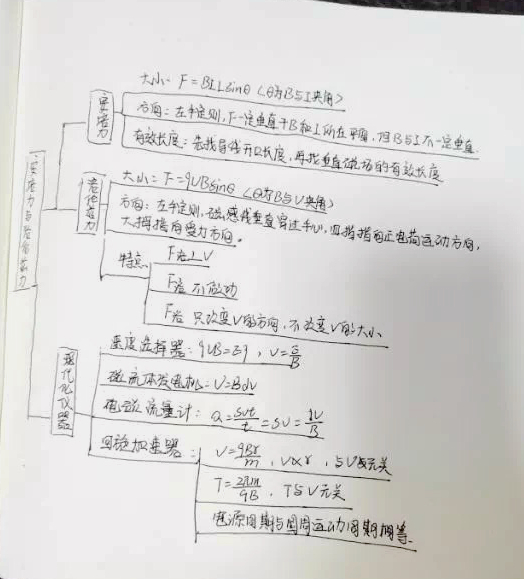 安培力与洛伦兹力
安培力
大小: F=BILsinθ (θ为B与I夹角)
方向: 左手定则, F一定垂直于B和I所在平面, 但B与I不一定垂直.
有效长度: 先找导线开口长度, 再找垂直磁场的有效长度
洛伦兹力
大小: F=qVBsinθ (θ为B与V夹角)
方向: 左手定则, 磁感线垂直穿过手心, 四指指向正电荷运动方向,
大拇指向受力方向。
特点
F洛⊥V
F洛 不做功
F洛 只改变V的方向, 不改变V的大小
现代化仪器
速度选择器: qVB=Eq, V=E/B
磁流体发电机: U=Bdv
电磁流量计: Q=SVt/t=SV=
回旋加速器:
V=qBr/m, V∝r, 与U无关
T=2πm/qB, T与V无关
电源周期与圆周运动周期相等.